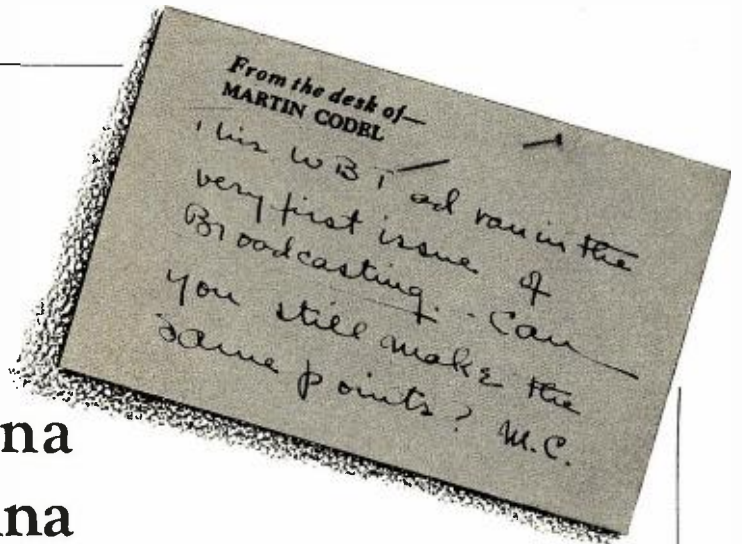 From the desk of—
MARTIN CODEL
This WBT ad ran in the
very first issue of
Broadcasting. - Can
you still make the
same points? M.C.
na
na